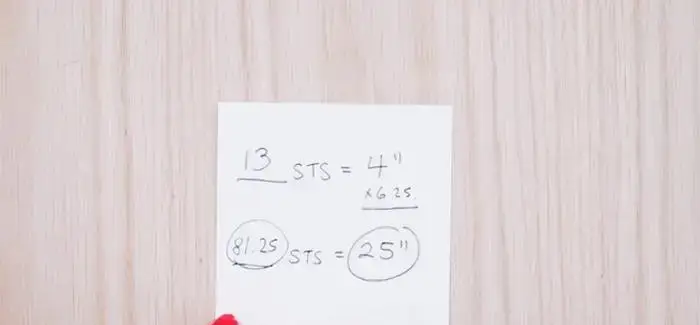 13 STS = 4"
×6.25
81.25 STS = 25"